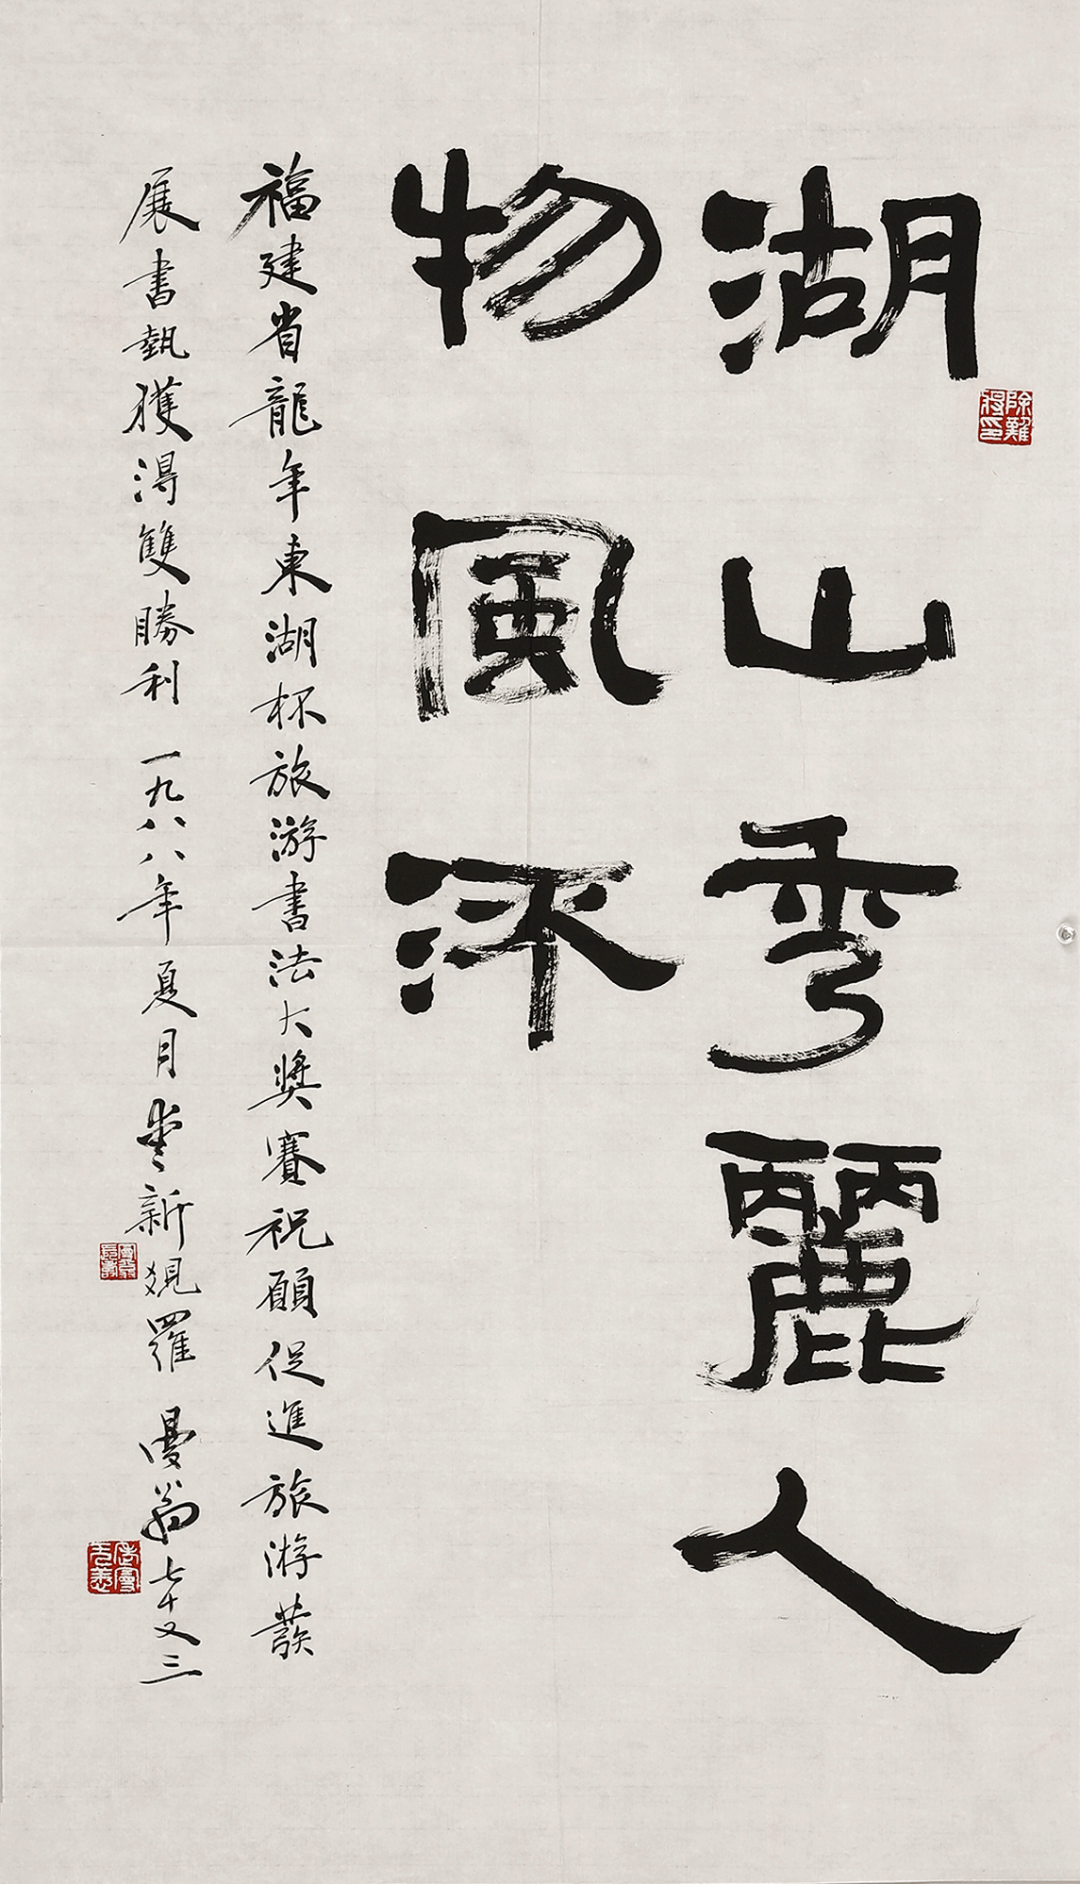 湖山秀麗人
物風流
福建省龍年東湖杯旅游書法大獎賽祝願促進旅游發
展書執獲得雙勝利 一九八八年夏月 新 羅 漫翁七十又三